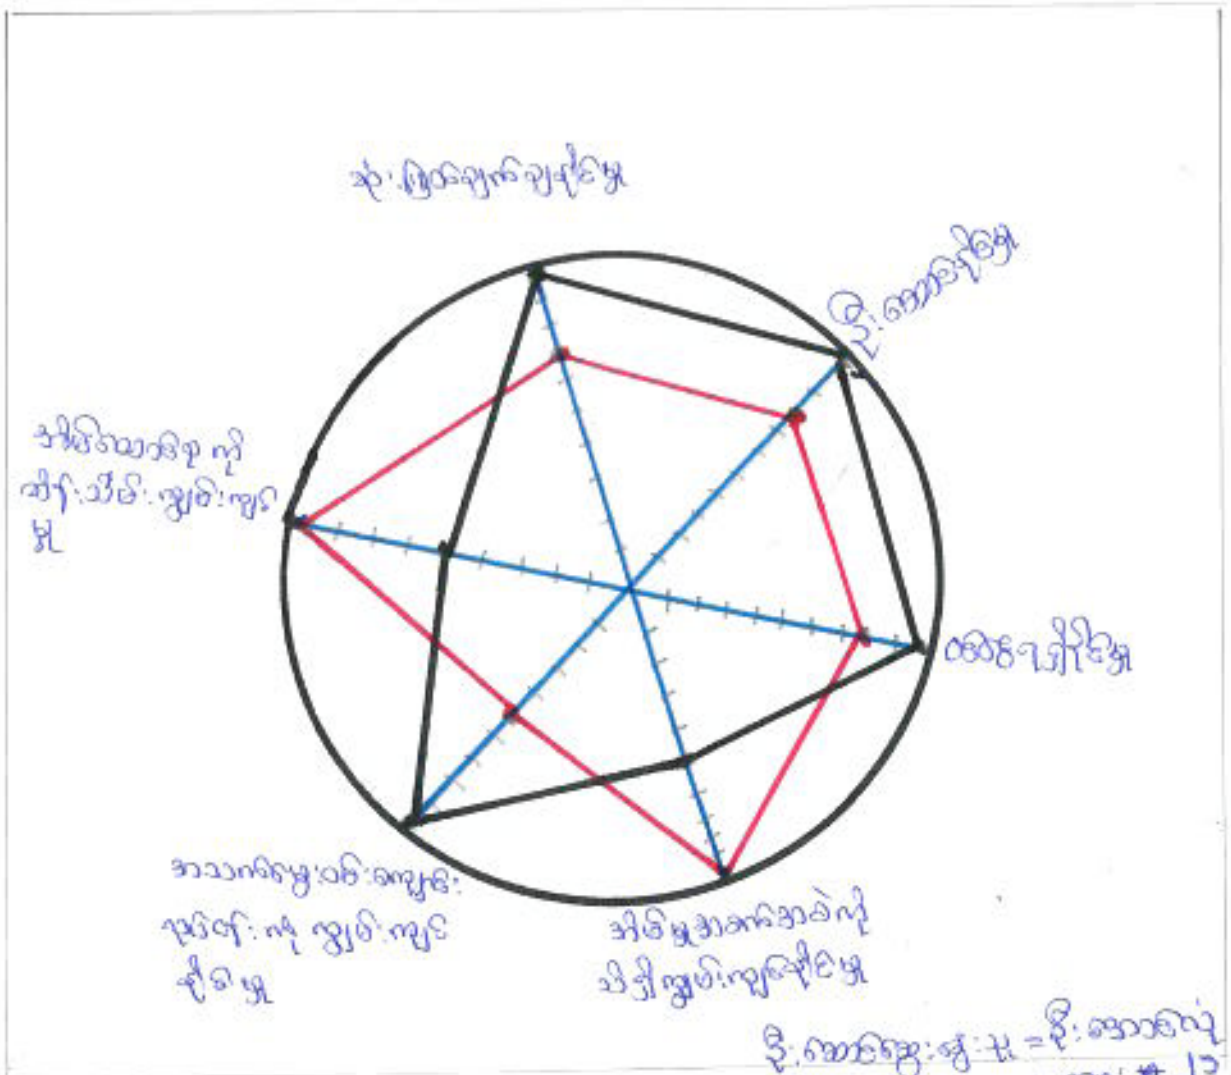 ဆုံးဖြတ်ချက်ချနိုင်မှု
ဦးဆောင်နိုင်မှု
အိမ်ထောင်စု ကို
ထိန်းသိမ်းကျွမ်းကျင်
မှု
ဝင်ငွေရရှိနိုင်မှု
အသက်မွေးဝမ်းကျောင်း
လုပ်ငန်းကို ကျွမ်းကျင်
နိုင်မှု
အိမ်မှုအခက်အခဲကို
သိရှိကျွမ်းကျင်နိုင်မှု
ဦးဆောင်ဆွေးနွေးသူ =